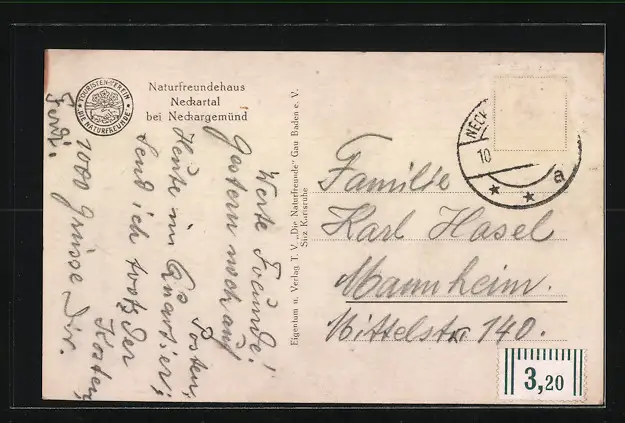 Naturfreundehaus
Neckartal
bei Neckargemünd
TOURISTEN-VEREIN
DIE NATURFREUNDE
Werte Freunde!
Gestern noch auf Posten,
Heute im Quartier,
Send ich trotz der Kosten,
1000 Grüsse Dir.
Ferdi.
Eigentum u. Verlag T. V. „Die Naturfreunde" Gau Baden e. V.
Sitz Karlsruhe
NECK
10
a
Familie
Karl Hasel
Mannheim.
Mittelstr 140.
3,20